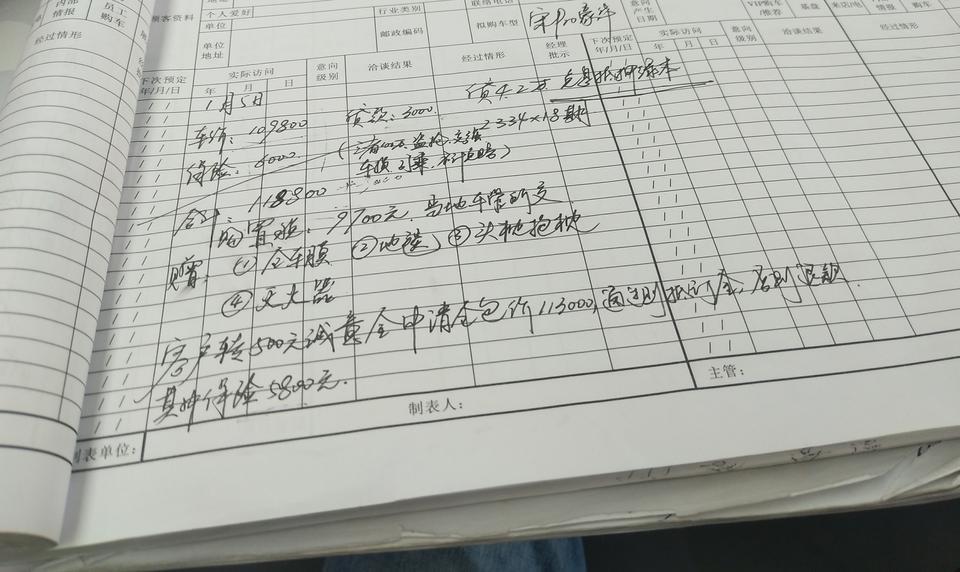 内部
情报
员工
购车
顾客资料
个人爱好
单位
单位
地址
行业类别
邮政编码
联络电话
拟购车型
宋
意向
产生
日期
VIP购车
/推荐
基盘
来店/电
情报
购车
经过情形
下次预定
年/月/日
实际访问
年 月 日
意向
级别
洽谈结果
经过情形
经理
批示
下次预定
年/月/日
实际访问
年 月 日
意向
级别
洽谈结果
经过情形
1月5日
车价: 109800
贷款: 3000
贷4.2万
保险: 6000
(三者100万 盗抢
2334×18期
合计: 118800
置换: 9700元, 当地车管所交
赠: ①全车膜 ②地毯 ③头枕抱枕
④灭火器
客户转500元诚意金申请全包价113000, 通过则抵订金, 否则退款.
其中保险5800元.
制表单位:
制表人:
主管: